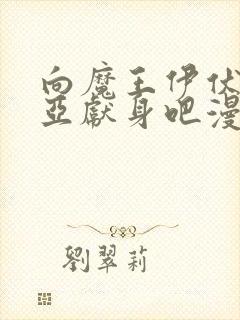 向魔王伊伏
亞獻身吧漫
劉翠莉